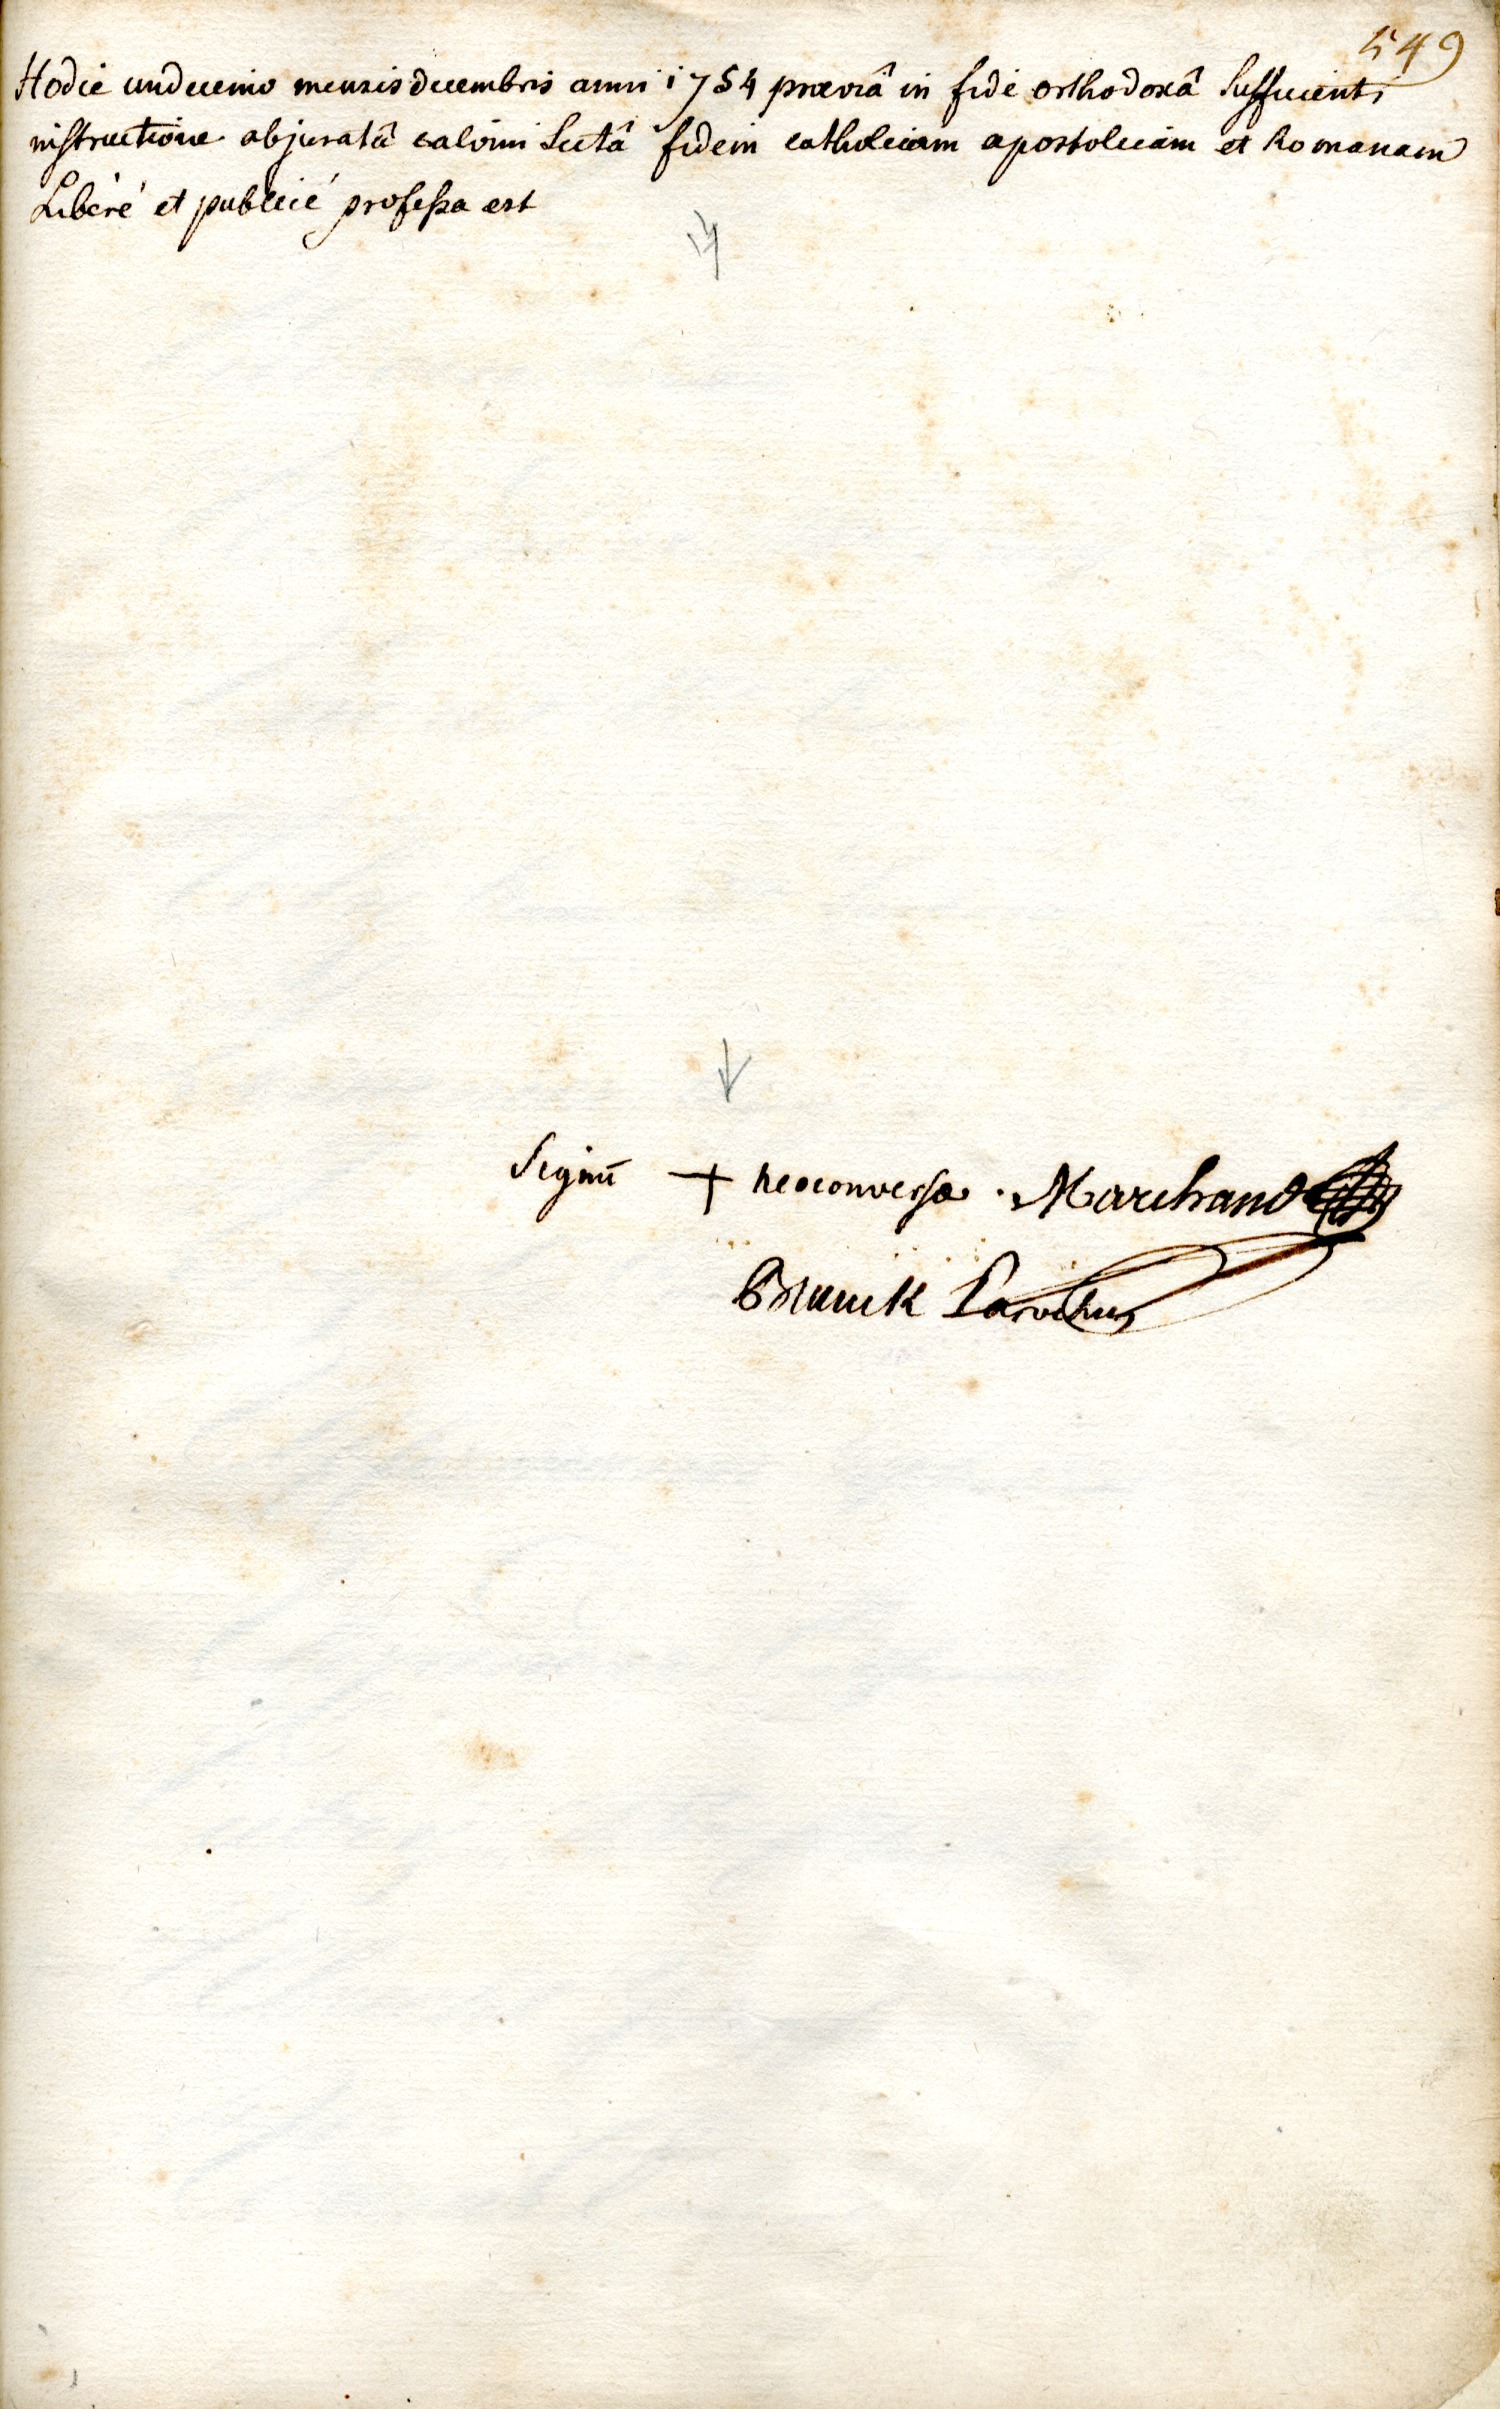 549
Hodie undecimo mensis decembris anni 1754 præviâ in fide orthodoxâ sufficienti
instructione abjuratâ calvini sectâ fidem catholicam apostolicam et Romanam
Liberé et publicé professa est
Signū + neoconversæ . Marchand
Parochus